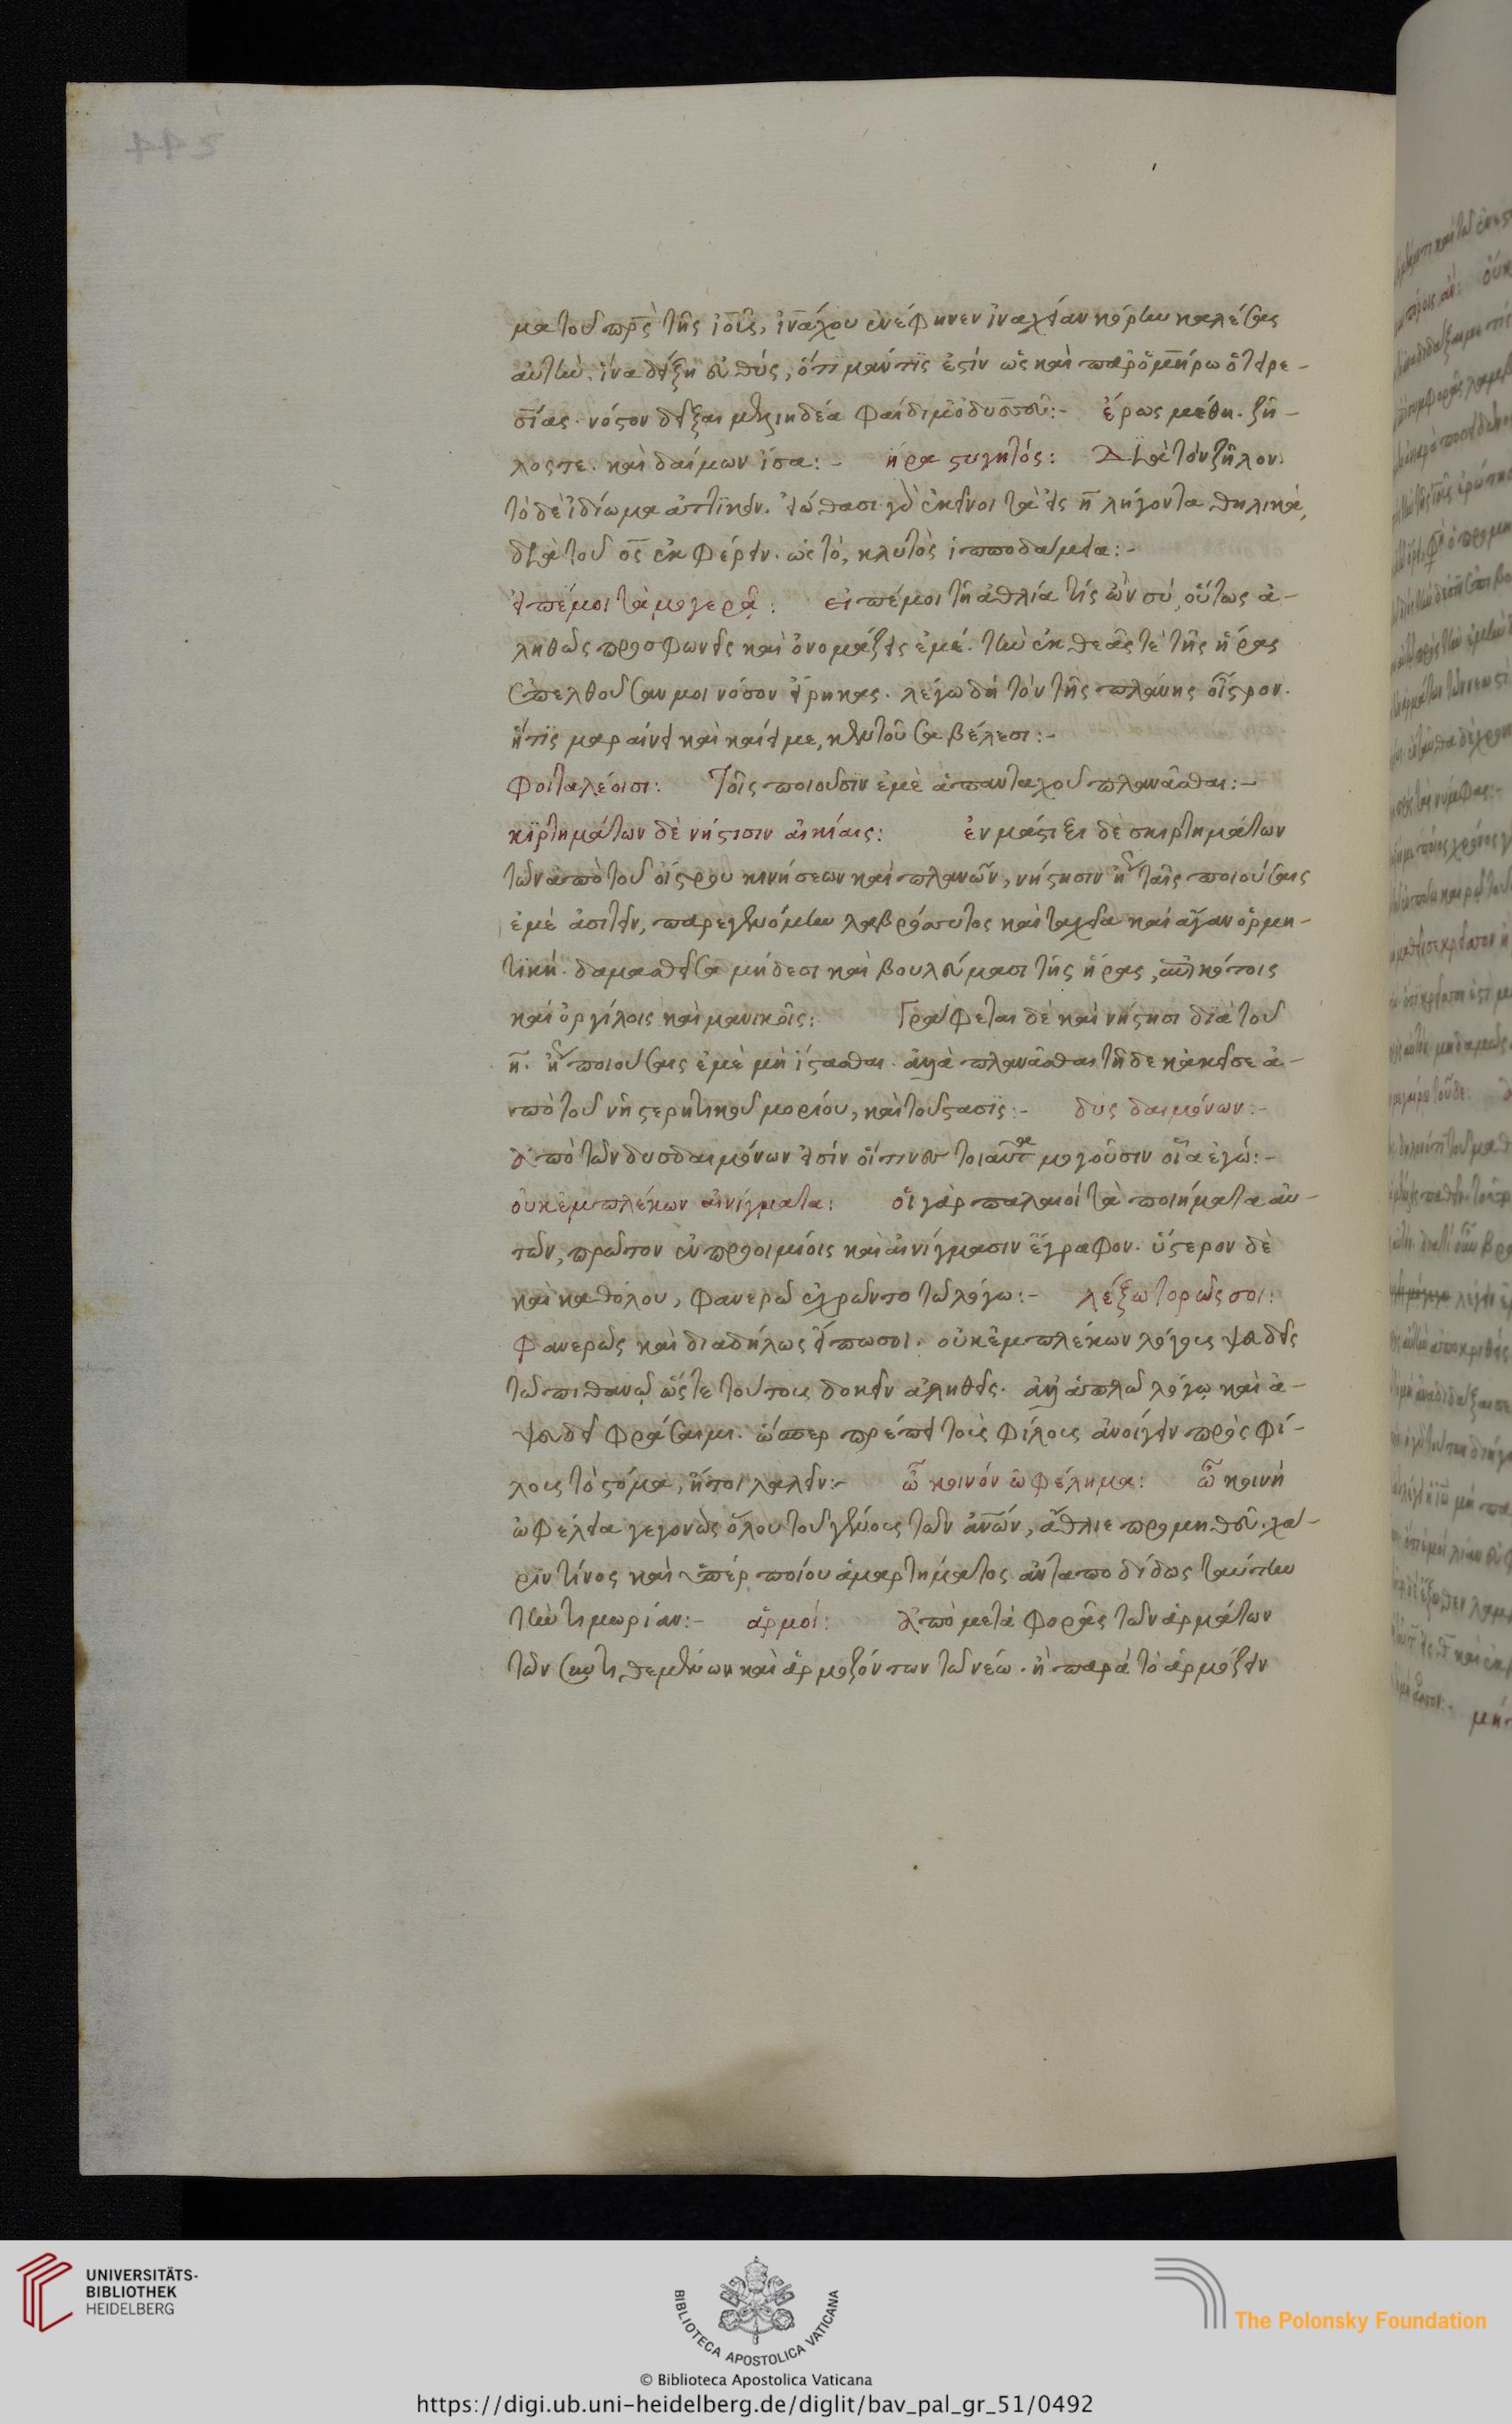 ματου πρς της ιους, ιναχου ενέφηνεν ιναχείαν κόρην καλέσας
αυτήν. ίνα δείξη ευθύς, ότι μαντις εστιν ως και παρ ομήρω ο τειρε-
σίας. νόστον δίζηαι μελιηδέα φαίδιμ οδυσσεύ:- έρως μέθη. ζή-
λος τε. και δαίμων ίσα:- ήρα στυγητός: Διὰ τὸν ζῆλον.
τὸ δὲ ἰδίωμα αττικόν. εἰώθασι γὰρ ἐκεῖνοι τὰ εἰς η λήγοντα θηλικά,
διὰ τοῦ ος ἐκφέρειν. ὡς τό, κλυτὸς ἱπποδάμεια:-
εἰπέ μοι τᾷ μογερᾷ: εἰπέ μοι τῇ ἀθλίᾳ τίς ὢν σύ, οὕτως ἀ-
ληθῶς προσφωνεῖς καὶ ὀνομάζεις ἐμέ. τὴν ἐκ θεᾶς τε τῆς ἥρας
ἐπελθοῦσαν μοι νόσον εἴρηκας. λέγω δὴ τὸν τῆς πλάνης οἶστρον.
ἥτις μαραίνει καὶ καίει με, κεντοῦσα βέλεσι:-
φοιταλέοισι: Τοῖς ποιοῦσιν ἐμὲ ἁπανταχοῦ πλανᾶσθαι:-
κιρτημάτων δὲ νήστισιν αἰκίαις: ἐν μάστιξι δὲ σκιρτημάτων
τῶν ἀπὸ τοῦ οἴστρου κινήσεων καὶ πλανῶν, νήστησιν ἤγουν ταῖς ποιούσαις
ἐμὲ ἀσιτεῖν, παρεγενόμην λαβρόσυτος καὶ ταχεῖα καὶ ἄγαν ὁρμη-
τική. δαμασθεῖσα μήδεσι καὶ βουλεύμασι τῆς ἥρας, ἐπικότοις
καὶ ὀργίλοις καὶ μανικοῖς: Γράφεται δὲ καὶ νήστησι διὰ τοῦ
η. ἤγουν ποιούσαις ἐμὲ μὴ ἵστασθαι. ἀλλὰ πλανᾶσθαι τῇδε κἀκεῖσε ἀ-
πὸ τοῦ νη στερητικοῦ μορίου, καὶ τοῦ στασις:- δυς δαιμόνων:-
ἀπὸ τῶν δυσδαιμόνων εἰσὶν οἵτινες τοιαῦτα μογοῦσιν οἷα ἐγώ:-
οὐκ ἐμπλέκων αἰνίγματα: οἱ γὰρ παλαιοὶ τὰ ποιήματα αὐ-
τῶν, πρῶτον ἐν προοιμίοις καὶ αἰνίγμασιν ἔγραφον. ὕστερον δὲ
καὶ καθόλου, φανερῷ ἐχρῶντο τῷ λόγω:- λέξω τορῶς σοι:
φανερῶς καὶ διαδήλως εἴπω σοι. οὐκ ἐμπλέκων λόγοις ψευδεῖς
τῷ πιθανῷ ὥστε τούτους δοκεῖν ἀληθεῖς. ἀλλ ἁπλῷ λόγῳ καὶ ἀ-
ψευδεῖ φράσαιμι. ὥσπερ πρέπει τοῖς φίλοις ἀνοίγειν πρὸς φί-
λους τὸ στόμα, ἤτοι λαλεῖν:- ὦ κοινὸν ὠφέλημα: ὦ κοινὴ
ὠφέλεια γεγονὼς ὅλου τοῦ γένους τῶν ἀνων, ἄθλιε προμηθεῦ. χά-
ριν τίνος καὶ ὑπὲρ ποίου ἁμαρτήματος ἀνταποδίδως ταύτην
τὴν τιμωρίαν:- ἁρμοῖ: ἀπὸ μεταφορᾶς τῶν ἁρμάτων
τῶν θεμένων καὶ ἁρμοζόντων τῷ νεώ. ἢ παρὰ τὸ ἁρμόζειν
UNIVERSITÄTS-
BIBLIOTHEK
HEIDELBERG
BIBLIOTECA APOSTOLICA VATICANA
The Polonsky Foundation
© Biblioteca Apostolica Vaticana
https://digi.ub.uni-heidelberg.de/diglit/bav_pal_gr_51/0492